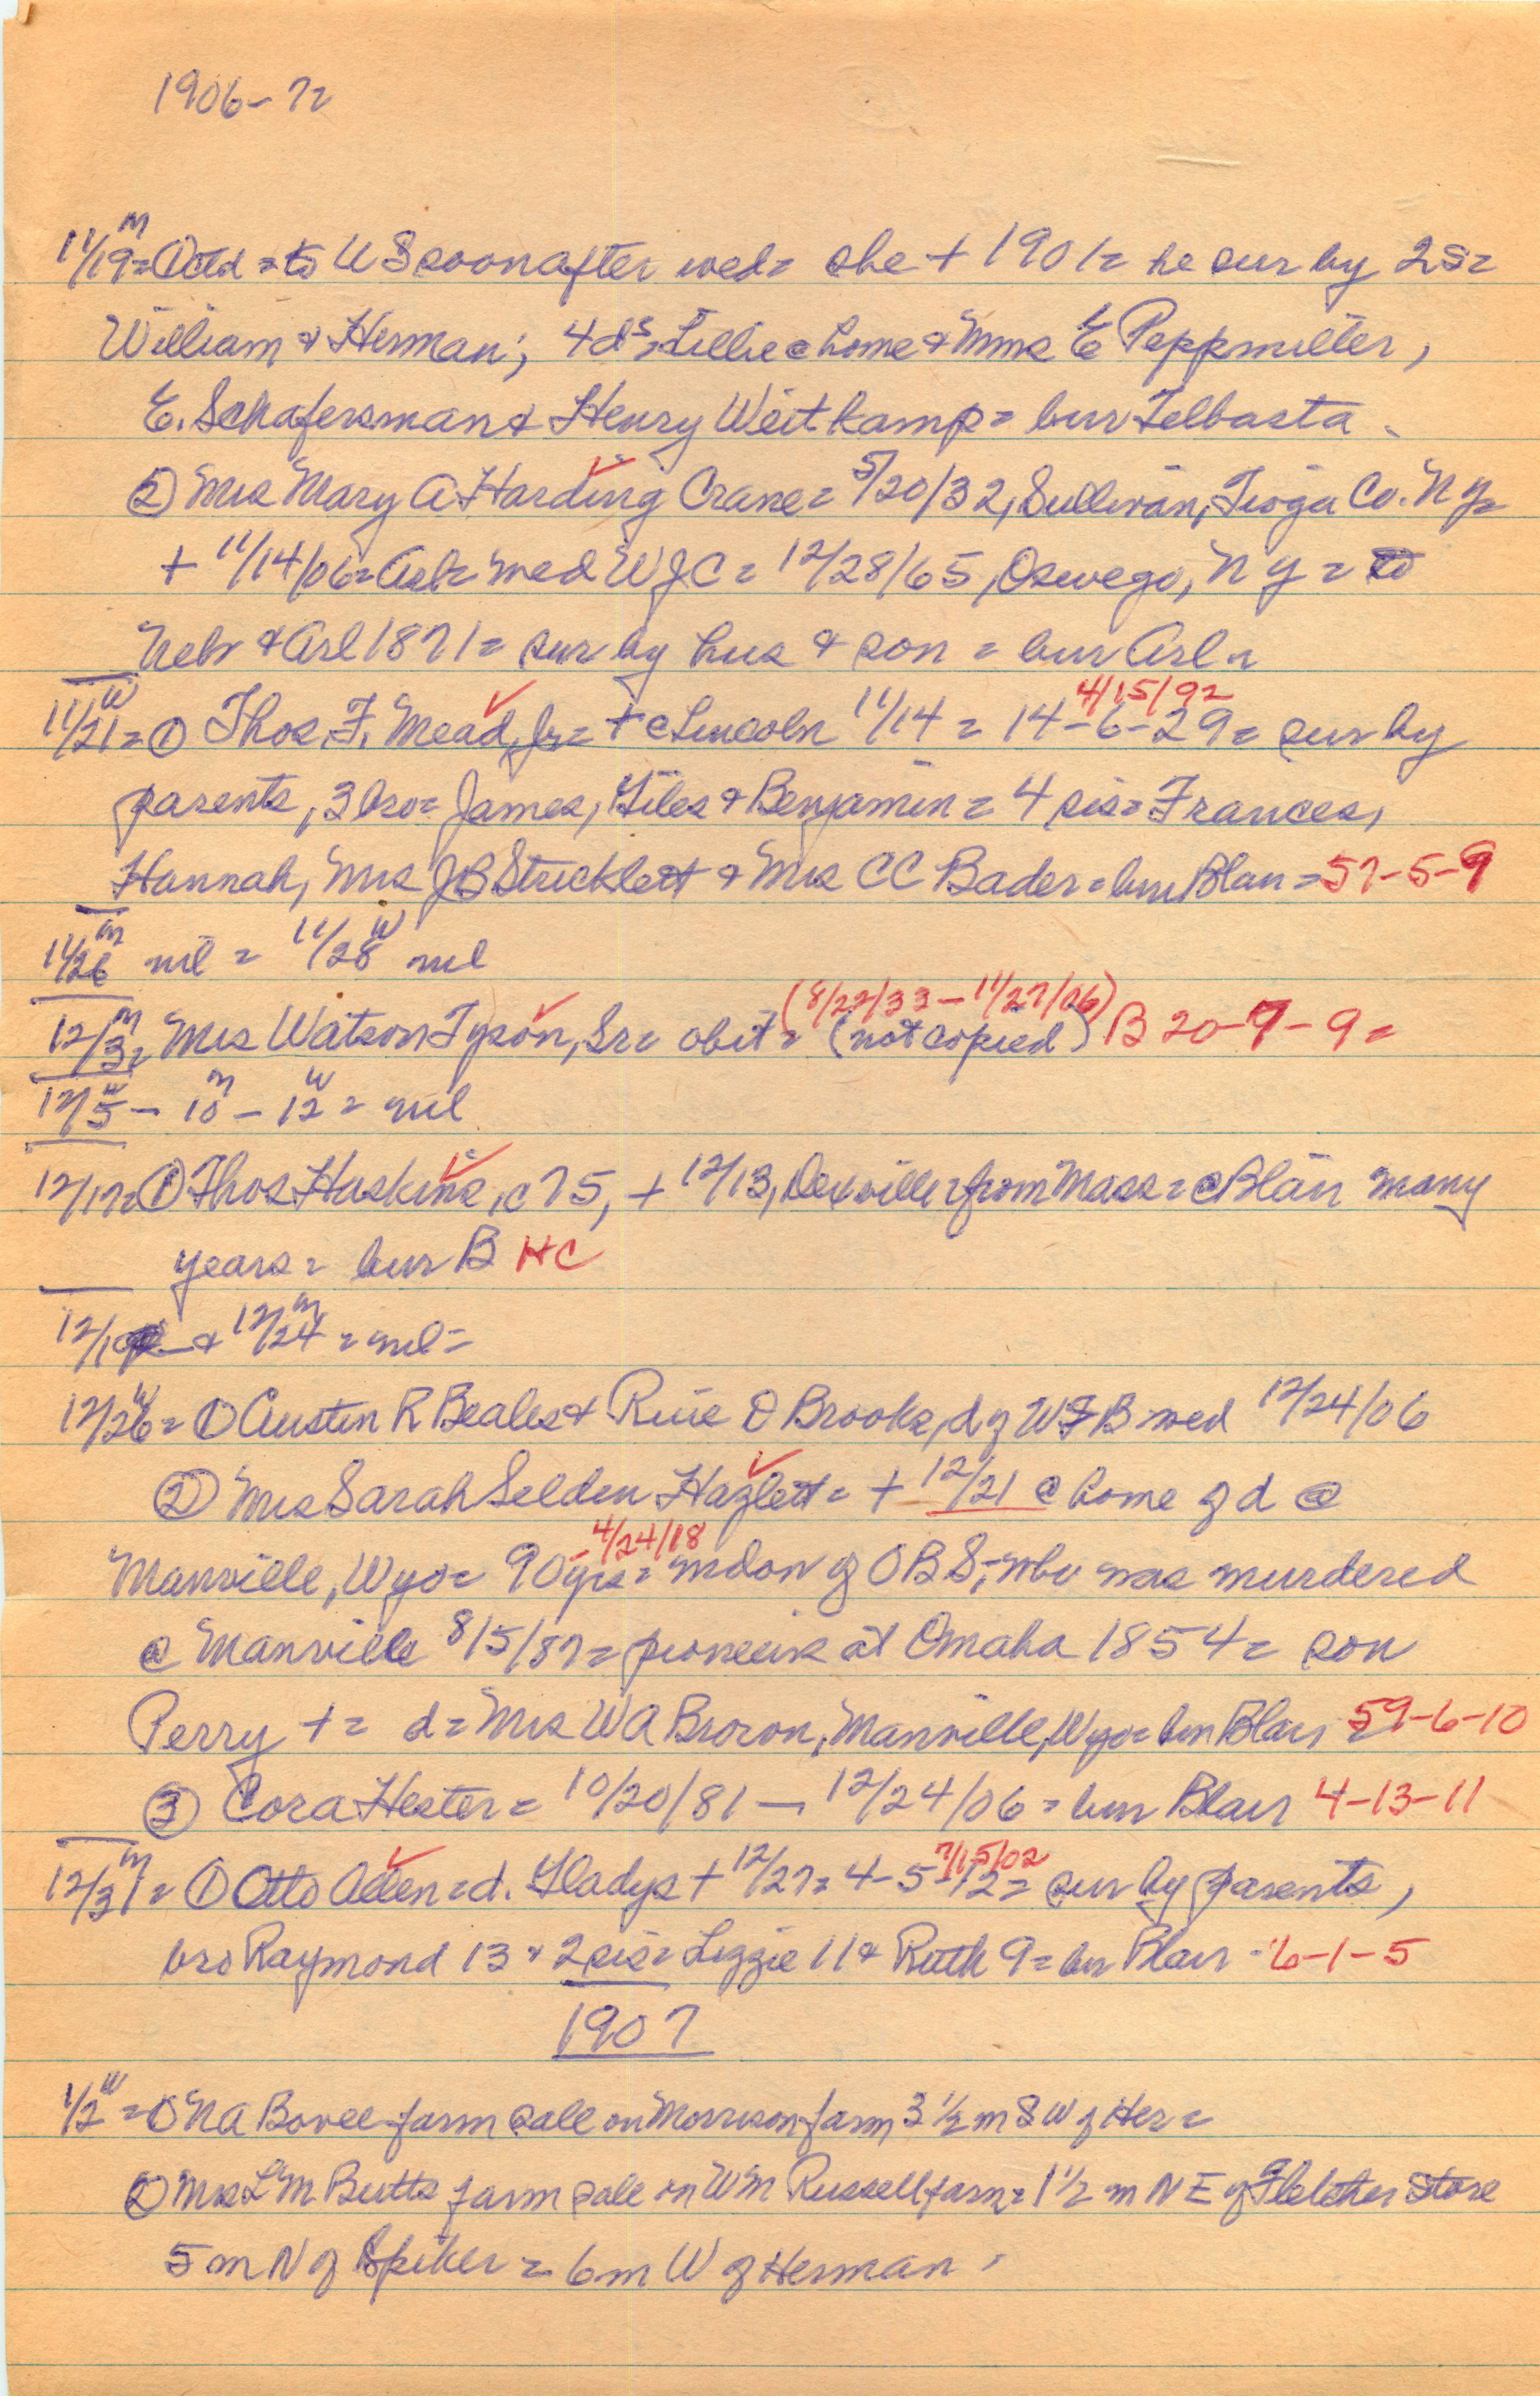 1906-7=
11/19 M = Octd = to U S soon after wed = she + 1901 = he sur by 2 s =
William & Herman; 4 ds = Lillie @ home & Mmes E Peppmiller,
E. Schafersman & Henry Weitkamp = bur Telbasta.
② Mrs Mary A Harding Crane = 5/20/32, Sullivan, Tioga Co. N Y =
+ 11/14/06 = Arl = wed W J C = 12/28/65, Oswego, N Y = to
Nebr & Arl 1871 = sur by hus & son = bur Arl =
4/15/92
11/21 W = ① Thos. F. Mead, Jr = + @ Lincoln 11/14 = 14-6-29 = sur by
parents, 3 bro = James, Giles & Benjamin = 4 sis = Frances,
Hannah, Mrs J B Stricklett & Mrs C C Bader = bur Blair = 57-5-9
11/26 M nil = 11/28 W nil
(8/22/33 - 11/27/06)
12/3 M = Mrs Watson Tyson, Sr = obit = (not copied) B 20-7-9 =
12/5 W - 10 M - 12 W = nil
12/17 = ① Thos Huskins, c 75, + 12/13, = from Mass = @ Blair many
years = bur B HC
12/19 & 12/24 M = nil =
12/26 W = ① Austin R Beales & Rue O Brooks, d of W F B wed 12/24/06
② Mrs Sarah Selden Hazlett = + 12/21 @ home of d @
4/24/18
Manville, Wyo = 90 yrs = widow of O B S, who was murdered
@ Manville 8/5/87 = pioneers at Omaha 1854 = son
Perry + = d = Mrs W A Brown, Manville, Wyo = bur Blair 59-6-10
③ Cora Hester = 10/20/81 - 12/24/06 = bur Blair 4-13-11
7/15/02
12/31 M = ① Otto Allen = d. Gladys + 12/27 = 4-5-12 = sur by parents,
bro Raymond 13 & 2 sis = Lizzie 11 & Ruth 9 = bur Blair - 6-1-5
1907
1/2 W = ① N A Bovee farm sale on Morrison farm 3 1/2 m S W of Her =
② Mrs L M Butts farm sale on Wm Russell farm = 1 1/2 m N E of Fletcher Store
5 m N of Spiker = 6 m W of Herman.